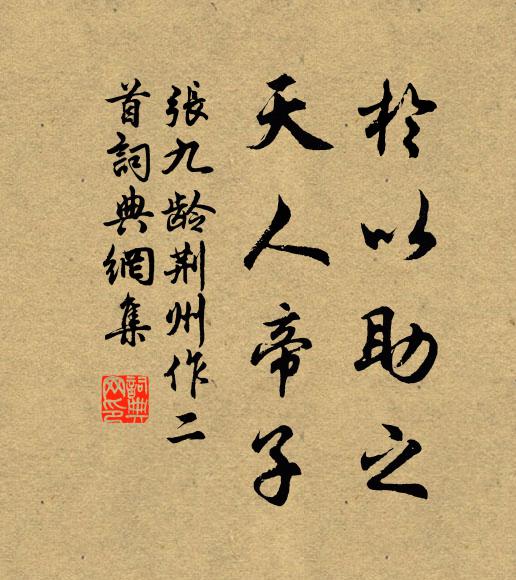 於以助之
天人帝子
張九龄荆州作二
首詞典網集
詞典
网印